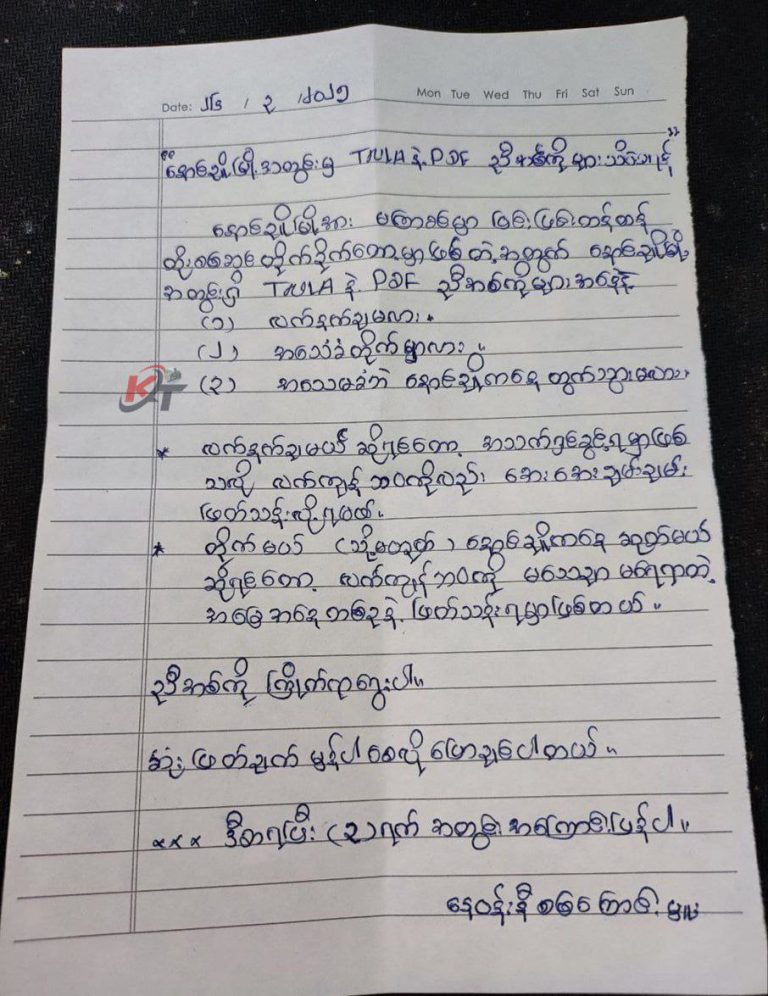 Date: ၂၆ / ၃ /၂၀၂၅
Mon Tue Wed Thu Fri Sat Sun
"နောင်ချိုမြို့အတွင်းမှ TNLA နဲ့ PDF ညီအစ်ကိုများသိစေရန်"
နောင်ချိုမြို့အား မကြာခင်မှာ ပြင်းပြင်းထန်ထန်
ထိုးစစ်ဆင်တိုက်ခိုက်တော့မှာဖြစ်တဲ့အတွက် နောင်ချိုမြို့
အတွင်းရှိ TNLA နဲ့ PDF ညီအစ်ကိုများအနေနဲ့
(၁) လက်နက်ချမလား။
(၂) အသေခံတိုက်မှာလား။
(၃) အသေမခံဘဲ နောင်ချိုကနေ ထွက်သွားမလား။
KT
* လက်နက်ချမယ် ဆိုရင်တော့ အသက်ရှင်ခွင့်ရမှာဖြစ်
သလို လက်ကျန်ဘဝကိုလည်း အေးအေးချမ်းချမ်း
ဖြတ်သန်းလို့ရမယ်။
* တိုက်မယ် (သို့မဟုတ်) နောင်ချိုကနေ ဆုတ်မယ်
ဆိုရင်တော့ လက်ကျန်ဘဝကို မသေချာ မရေရာတဲ့
အခြေအနေတစ်ခုနဲ့ ဖြတ်သန်းရမှာဖြစ်တယ်။
ညီအစ်ကို ကြိုက်ရာရွေးပါ။
ဆုံးဖြတ်ချက် မှန်ပါစေလို့ မြှော်လင့်ပါတယ်။
××× ဒီစာရပြီး (၃)ရက် အတွင်း အကြောင်းပြန်ပါ။
နေဝန်းနီ စစ်ကြောင်းမှူး